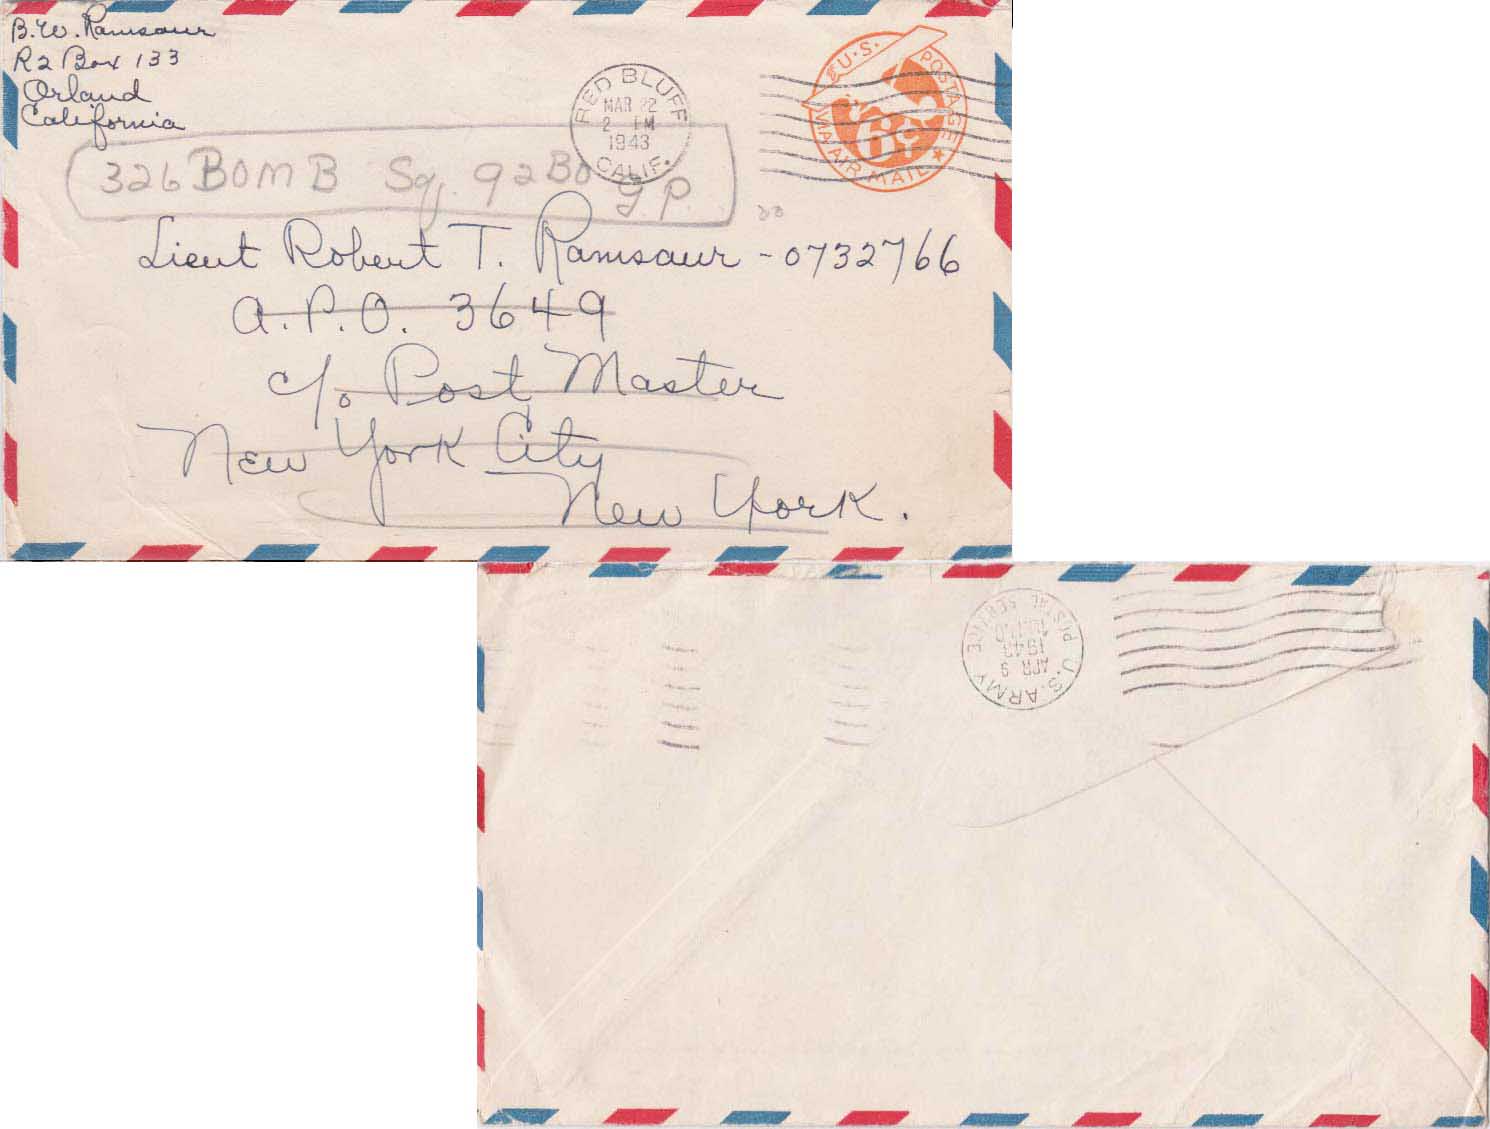 B. W. Ramsaur
R2 Box 133
Orland
California
RED BLUFF
MAR 22
2 PM
1943
CALIF.
U.S. POSTAGE
6¢
VIA AIR MAIL
326 BOMB Sq. 92 BO GP.
Lieut Robert T. Ramsaur - 0732766
A.P.O. 3649
c/o Post Master
New York City
New York.
U.S. ARMY
APR 9
1943
POSTAL SERVICE